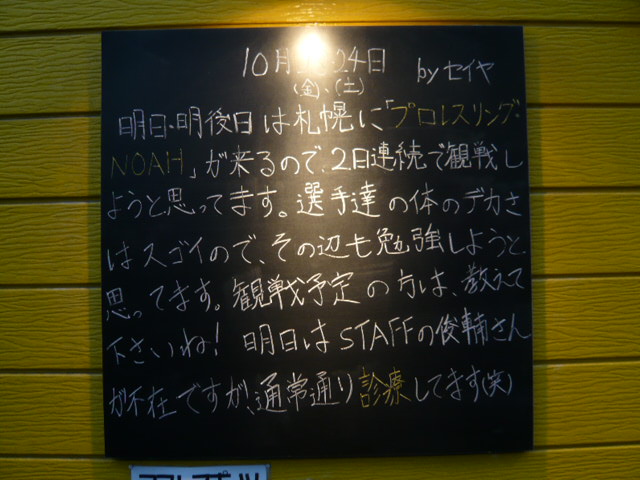 10月 24日 byセイヤ
(金)、(土)
明日・明後日は札幌に「プロレスリング・
NOAH」が来るので、2日連続で観戦し
ようと思ってます。選手達の体のデカさ
はスゴイので、その辺も勉強しようと
思ってます。観戦予定の方は、教えて
下さいね! 明日はSTAFFの俊輔さん
が不在ですが、通常通り診療してます(笑)